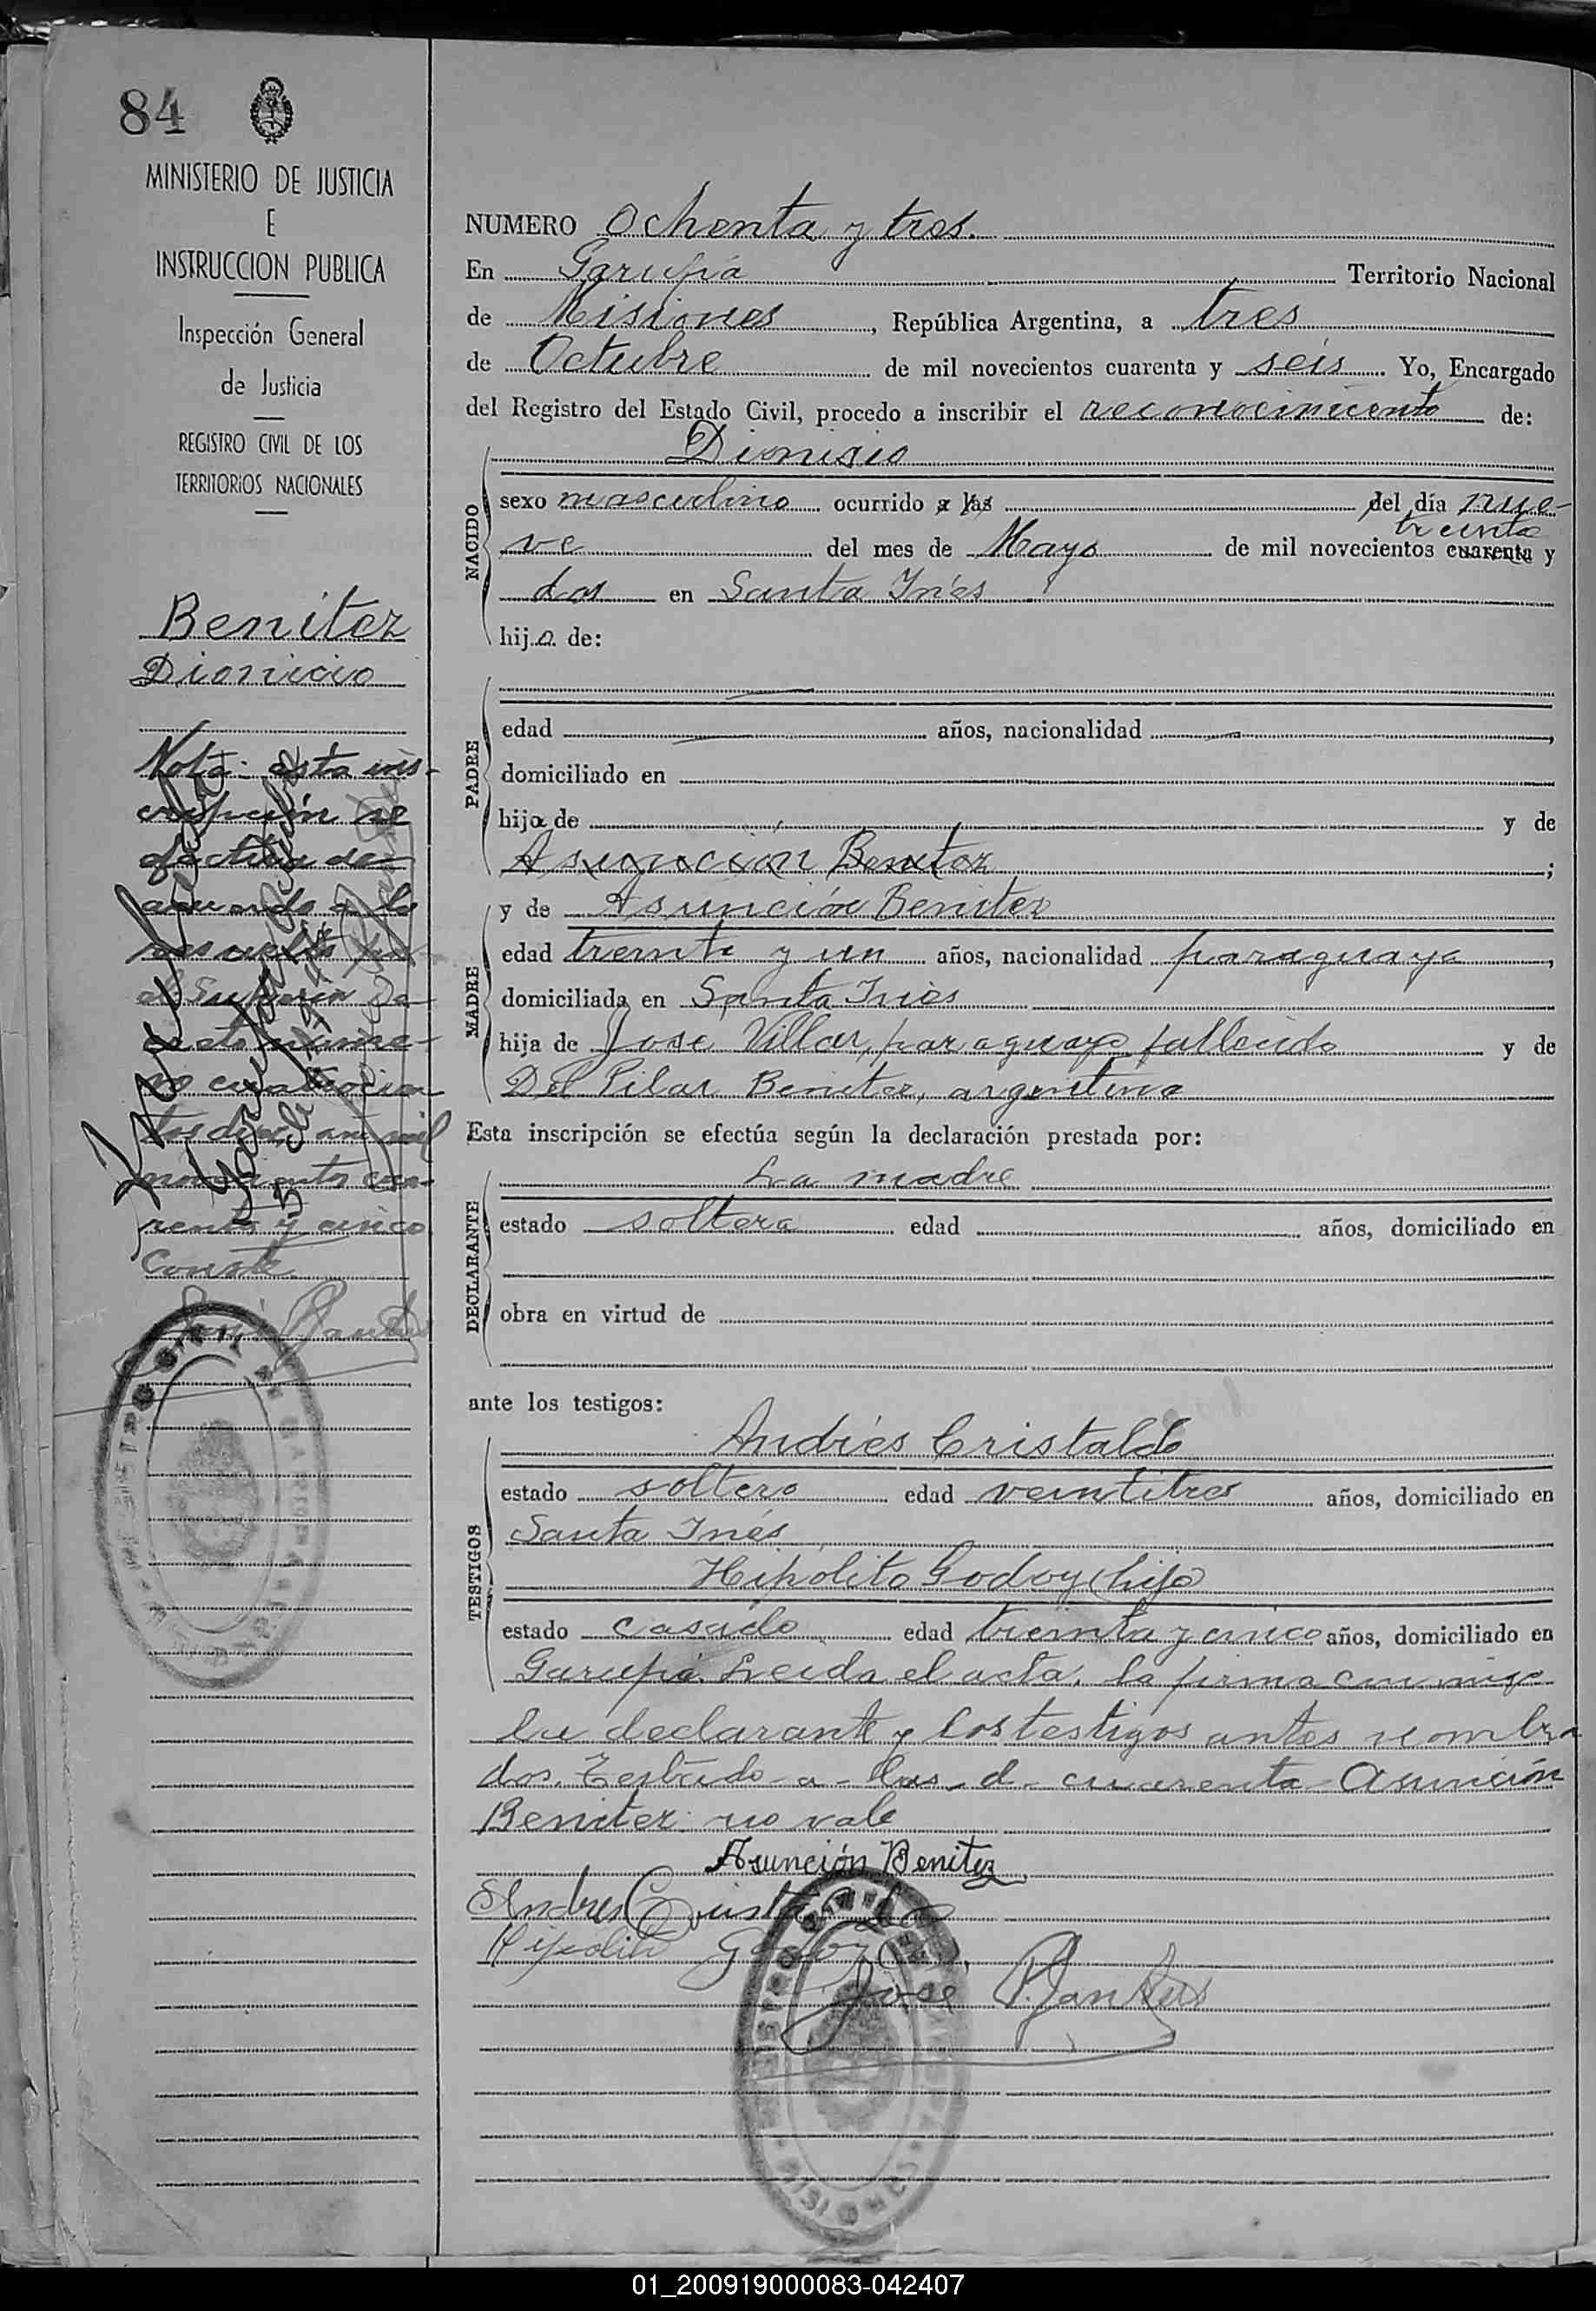 84
MINISTERIO DE JUSTICIA
E
INSTRUCCION PUBLICA
Inspección General
de Justicia
REGISTRO CIVIL DE LOS
TERRITORIOS NACIONALES
Benitez
Dionicio
Nota: esta ins-
cripción se
efectúa de
acuerdo a lo
resuelto por
el Superior De-
creto núme-
ro cuatrocien
tos diez, año mil
novecientos cua-
renta y cinco
Conste.
NUMERO Ochenta y tres.
En Garupá Territorio Nacional
de Misiones, República Argentina, a tres
de Octubre de mil novecientos cuarenta y seis. Yo, Encargado
del Registro del Estado Civil, procedo a inscribir el reconocimiento de:
Dionisio
NACIDO
sexo masculino ocurrido a las del día nue-
treinta
ve del mes de Mayo de mil novecientos cuarenta y
dos en Santa Inés
hijo de:
PADRE
edad años, nacionalidad ,
domiciliado en
hijo de y de
Asunción Benitez ;
MADRE
y de Asunción Benitez
edad treinta y un años, nacionalidad paraguaya,
domiciliada en Santa Inés
hija de Jose Villar, paraguayo fallecido y de
Del Pilar Benitez, argentina
Esta inscripción se efectúa según la declaración prestada por:
DECLARANTE
La madre
estado soltera edad años, domiciliado en
obra en virtud de
ante los testigos:
TESTIGOS
Andrés Cristaldo
estado soltero edad veintitres años, domiciliado en
Santa Inés
Hipólito Godoy (hijo)
estado casado edad treinta y cinco años, domiciliado en
Garupá. Leida el acta, la firma conmigo
la declarante y los testigos antes nombra
dos. Testado - a - las - d - cuarenta - Asunción
Benitez: no vale
Asunción Benitez
Andres Cristaldo
Hipolito Godoy
Jose
01_200919000083-042407